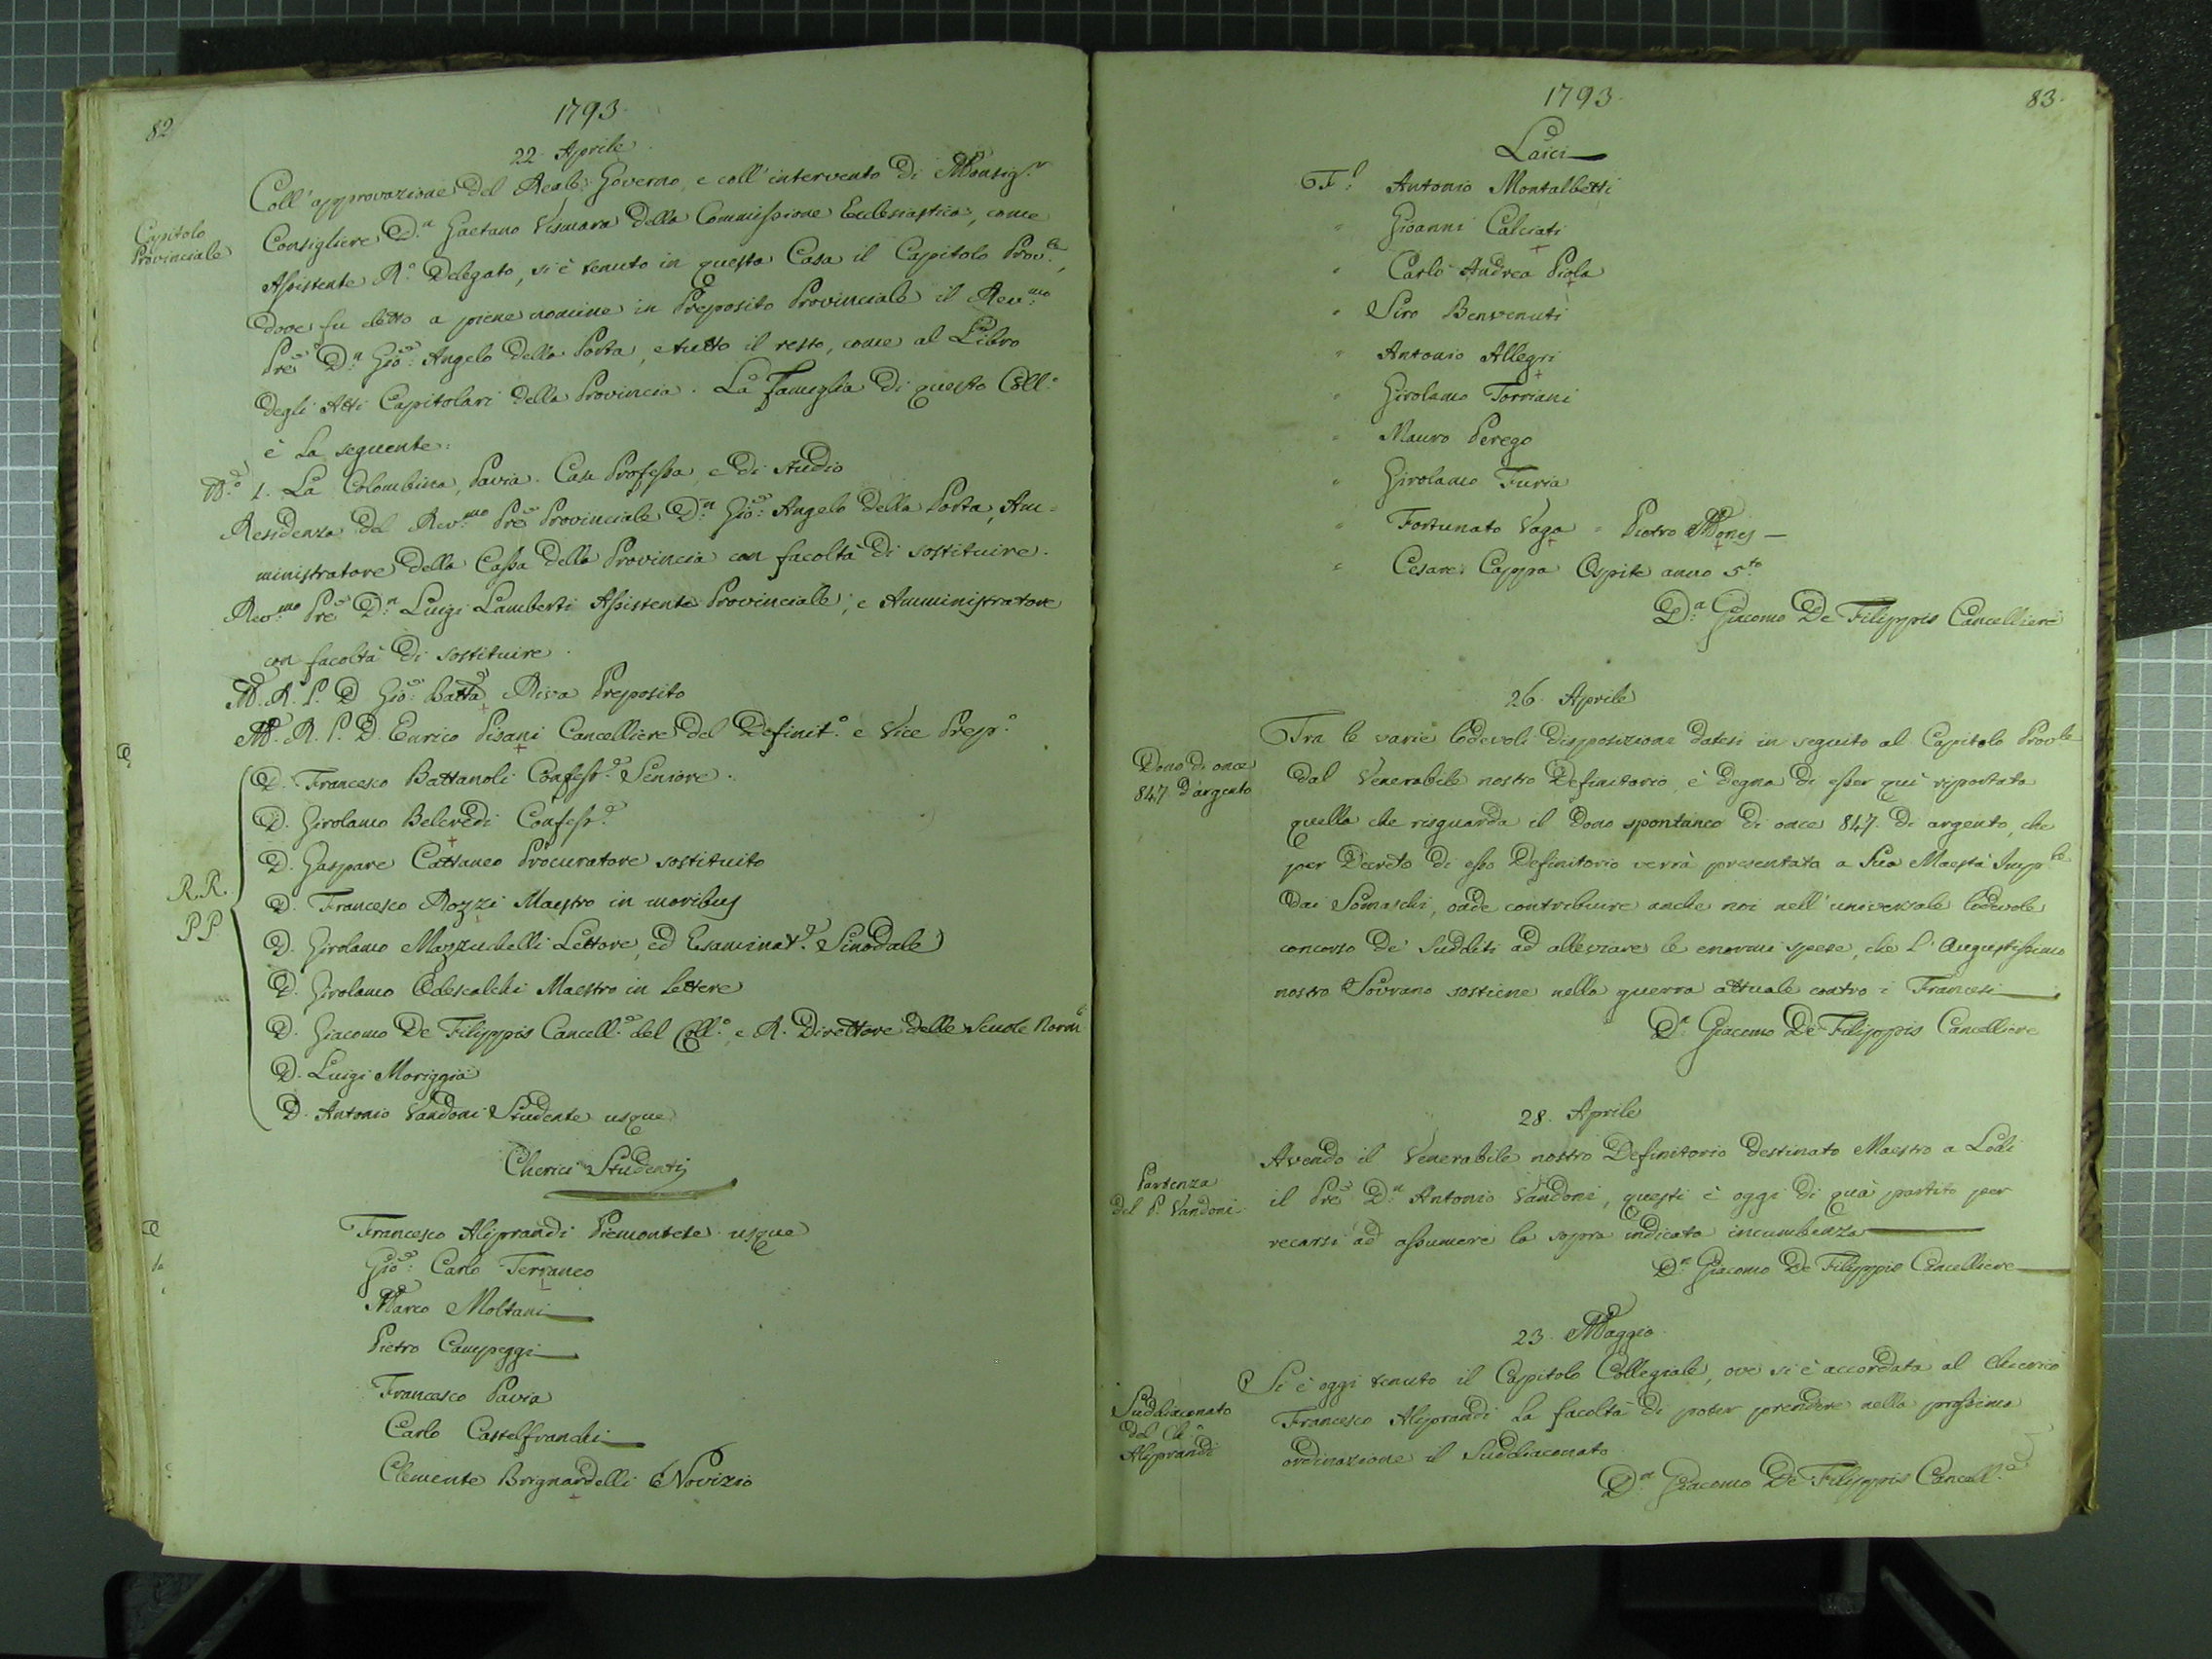 82
1793.
22. Aprile.
Capitolo
Provinciale
Coll'approvazione del Reale Governo, e coll'intervento di Monsig.r
Consigliere D.n Gaetano Vismara della Commissione Ecclesiastica, come
Assistente R.o Delegato, si è tenuto in questa Casa il Capitolo Prov.le,
dove fu eletto a piene nomine in Preposito Provinciale il Rev.mo
Pre D.n Gio: Angelo della Porta, e tutto il resto, come al Libro
degli Atti Capitolari della Provincia. La Famiglia di questo Coll.o
è la seguente:
N.o 1. La Colombina, Pavia. Casa Professa, e di studio
Residenza del Rev.mo Pre Provinciale D.n Gio: Angelo della Porta, Am-
ministratore della Cassa della Provincia con facoltà di sostituire.
Rev.mo Pre D.n Luigi Lamberti Assistente Provinciale, e Amministratore
con facoltà di sostituire.
M. R. P. D. Gio: Batta Riva Preposito
M. R. P. D. Enrico Pisani Cancelliere del Definit.o e Vice Prep.o
R.R.
P.P.
D. Francesco Battanoli Confess.e Seniore.
D. Girolamo Belcredi Confess.e
D. Gaspare Cattaneo Procuratore sostituito
D. Francesco Rozzi Maestro in moribus
D. Girolamo Mazzuchelli Lettore, ed Esaminat.e Sinodale
D. Girolamo Odescalchi Maestro in Lettere
D. Giacomo De Filippis Cancell.e del Coll.o, e R. Direttore delle Scuole Norm.i
D. Luigi Moriggia
D. Antonio Vandoni Studente usque
Cherici Studenti
Francesco Aliprandi Piemontese usque
Gio: Carlo Terraneo
Marco Moltani
Pietro Campeggi
Francesco Pavia
Carlo Castelfranchi
Clemente Brignardelli Novizio
1793.
83.
Laici
F.l Antonio Montalbetti
" Gioanni Calciati
" Carlo Andrea Piola
" Siro Benvenuti
" Antonio Allegri
" Girolamo Torriani
" Mauro Perego
" Girolamo Furia
" Fortunato Vaga " Pietro Mones
" Cesare Cappa Ospite anno 5.to
D.n Giacomo De Filippis Cancelliere
26. Aprile
Dono di once
847. d'argento
Tra le varie lodevoli disposizioni datesi in seguito al Capitolo Prov.le
dal Venerabile nostro Definitorio, è degna di esser quì riportata
quella che risguarda il dono spontaneo di once 847. di argento, che
per Decreto di esso Definitorio verrà presentata a Sua Maestà Imp.le
dai Somaschi, onde contribuire anche noi nell'universale lodevole
concorso de' Sudditi ad alleviare le enormi spese, che l'Augustissimo
nostro Sovrano sostiene nella guerra attuale contro i Francesi
D.n Giacomo De Filippis Cancelliere
28. Aprile
Partenza
del P. Vandoni
Avendo il Venerabile nostro Definitorio destinato Maestro a Lodi
il Pre D.n Antonio Vandoni, questi è oggi di quà partito per
recarsi ad assumere la sopra indicata incumbenza
D.n Giacomo De Filippis Cancelliere
23. Maggio
Suddiaconato
del Ch.o
Aliprandi
Si è oggi tenuto il Capitolo Collegiale, ove si è accordata al Chierico
Francesco Aliprandi la facoltà di poter prendere nella prossima
ordinazione il Suddiaconato.
D.n Giacomo De Filippis Cancell.e